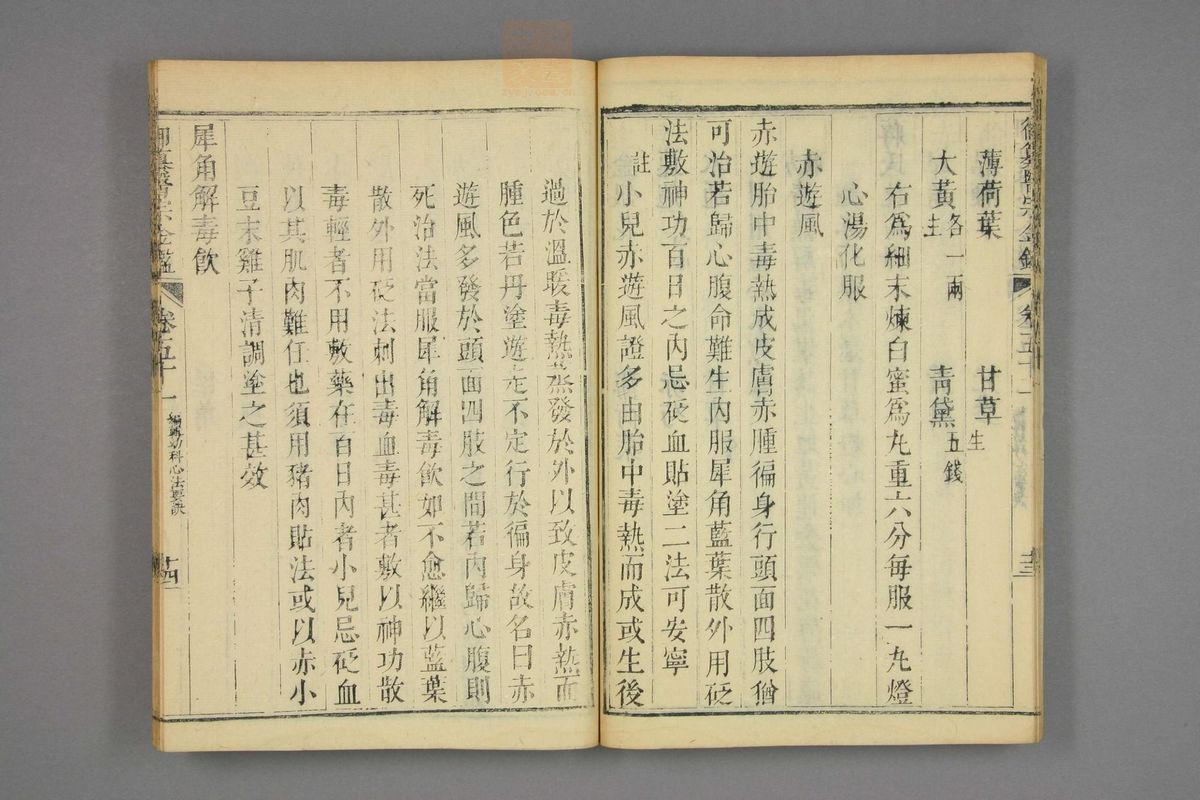 薄荷葉 甘草生
大黃生 各一兩 青黛五錢
右爲細末煉白蜜爲丸重六分每服一丸燈
心湯化服
赤遊風
赤遊胎中毒熱成皮膚赤腫徧身行頭面四肢猶
可治若歸心腹命難生內服犀角藍葉散外用砭
法敷神功百日之內忌砭血貼塗二法可安寧
註小兒赤遊風證多由胎中毒熱而成或生後
過於溫暖毒熱蒸發於外以致皮膚赤熱而
腫色若丹塗遊走不定行於徧身故名曰赤
遊風多發於頭面四肢之間若內歸心腹則
死治法當服犀角解毒飲如不愈繼以藍葉
散外用砭法刺出毒血毒甚者敷以神功散
毒輕者不用敷藥在百日內者小兒忌砭血
以其肌肉難任也須用豬肉貼法或以赤小
豆末雞子清調塗之甚效
犀角解毒飲
御纂醫宗金鑑 卷五十一 編輯幼科心法要訣 十四